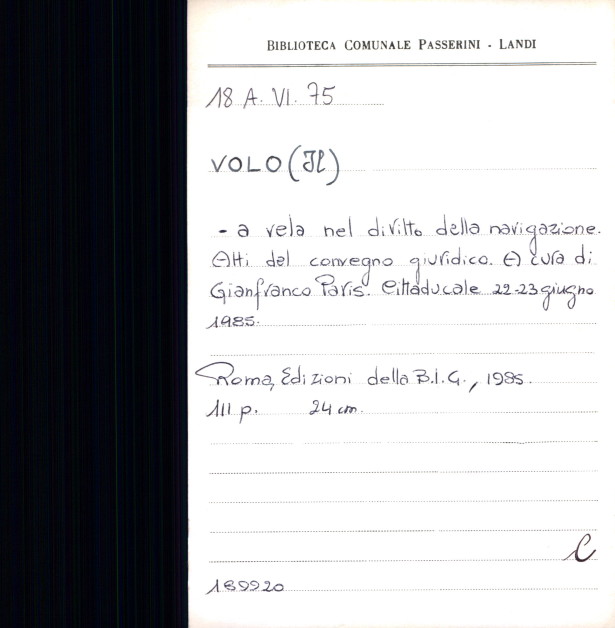 BIBLIOTECA COMUNALE PASSERINI - LANDI
18 A. VI. 75
VOLO (Il)
- a vela nel diritto della navigazione.
Atti del convegno giuridico. A cura di
Gianfranco Paris. Cittaducale 22-23 giugno
1985.
Roma, Edizioni della B.I.G., 1985.
111 p. 24 cm.
C
189920